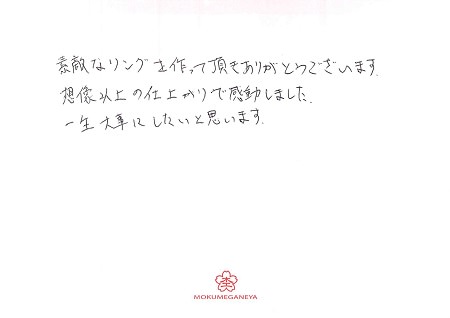 素敵なリングを作って頂きありがとうございます.
想像以上の仕上がりで感動しました.
一生大事にしたいと思います.
杢
MOKUMEGANEYA